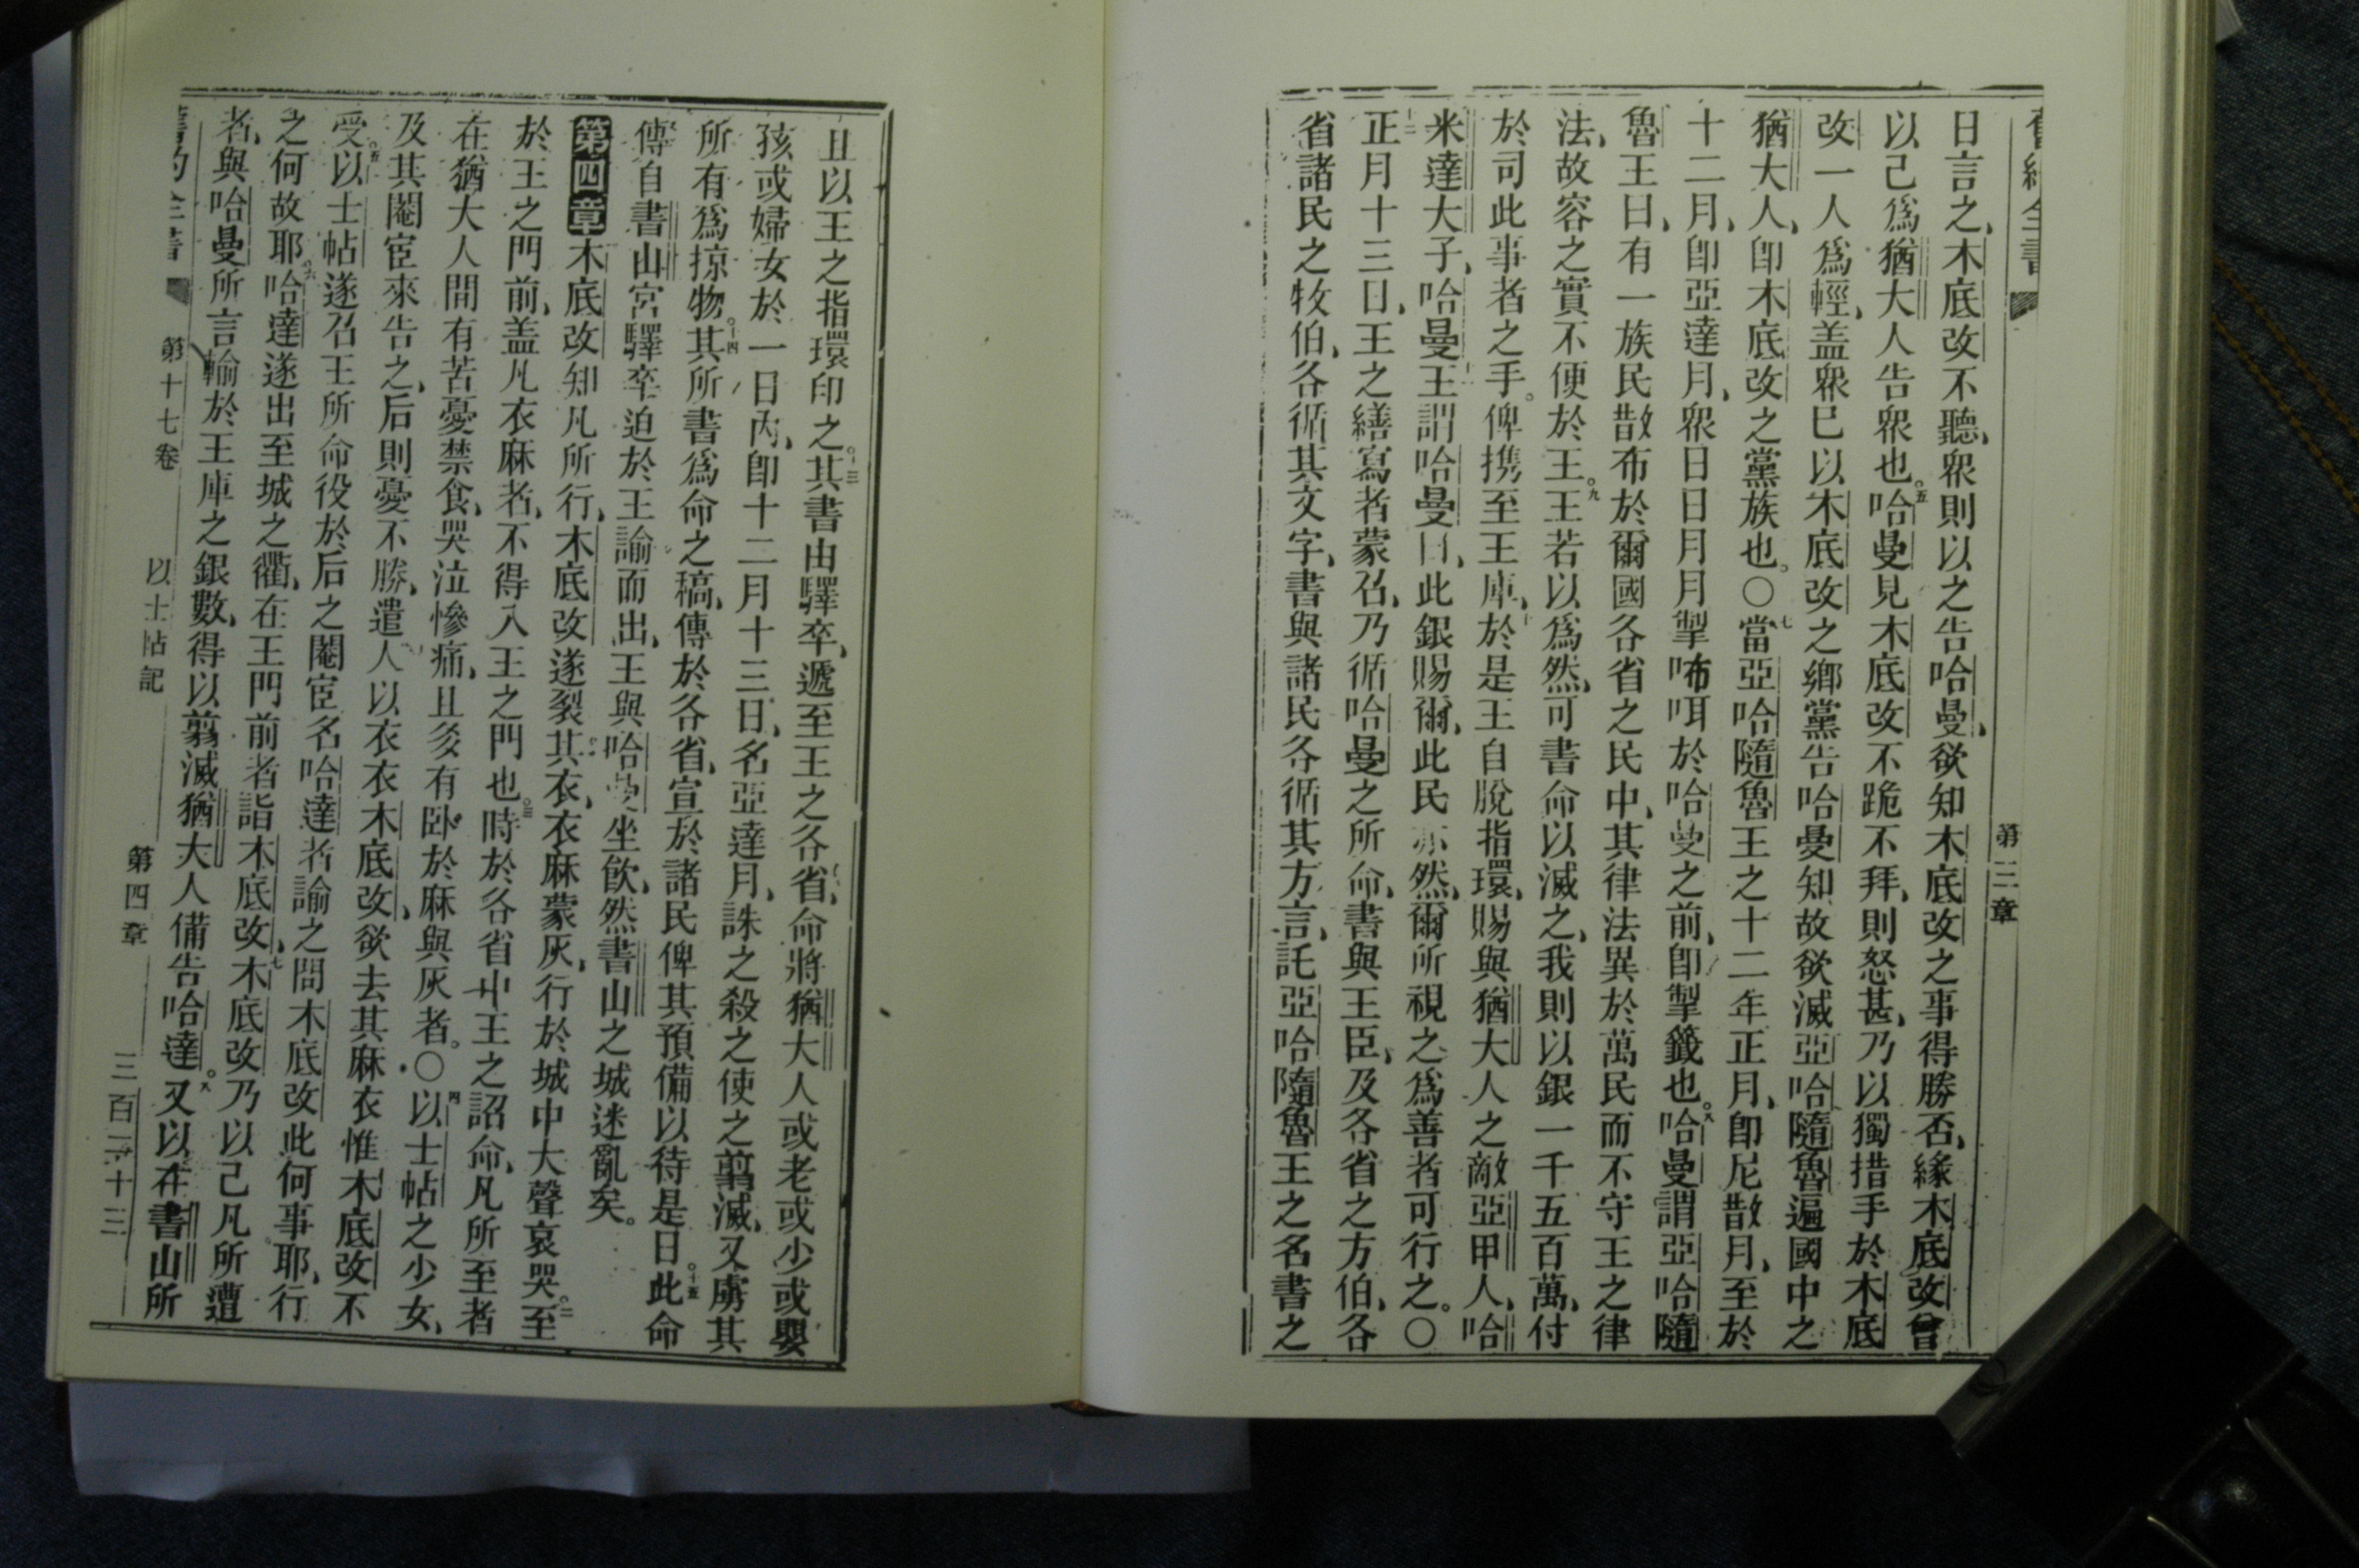 第三章
日言之、木底改不聽、眾則以之告哈曼、欲知木底改之事得勝否、緣木底改曾
以己爲猶大人告眾也。五哈曼見木底改不跪不拜、則怒甚、乃以獨措手於木底
改一人爲輕、盖眾巳以木底改之鄕黨告哈曼知故欲滅亞哈隨魯遍國中之
猶大人、卽木底改之黨族也。〇七當亞哈隨魯王之十二年正月、卽尼散月、至於
十二月、卽亞達月、眾日日月月掣咘咡於哈曼之前、卽掣籤也。八哈曼謂亞哈隨
魯王曰、有一族民散布於爾國各省之民中、其律法異於萬民而不守王之律
法、故容之實不便於王。九王若以爲然、可書命以滅之、我則以銀一千五百萬、付
於司此事者之手。俾携至王庫、十於是王自脫指環、賜與猶大人之敵亞甲人、哈
米達大子、哈曼十一王謂哈曼曰、此銀賜爾、此民亦然、爾所視之爲善者可行之。〇
十二正月十三日、王之繕寫者蒙召、乃循哈曼之所命、書與王臣、及各省之方伯、各
省諸民之牧伯、各循其文字、書與諸民各循其方言、託亞哈隨魯王之名書之
且以王之指環印之。十三其書由驛卒、遞至王之各省、命將猶大人或老或少或嬰
孩或婦女於一日內、卽十二月十三日、名亞達月、誅之殺之使之翦滅、又虜其
所有爲掠物。十四其所書爲命之稿、傳於各省、宣於諸民俾其預備以待是日。十五此命
傳自書山宮驛卒迫於王諭而出、王與哈曼坐飲、然書山之城迷亂矣。
第四章木底改知凡所行、木底改遂裂其衣、衣麻蒙灰、行於城中大聲哀哭。二至
於王之門前、盖凡衣麻者、不得入王之門也。三時於各省中王之詔命、凡所至者
在猶大人間有苦憂禁食、哭泣慘痛、且多有卧於麻與灰者。〇四以士帖之少女、
及其閹宦來告之、后則憂不勝、遣人以衣衣木底改、欲去其麻衣惟木底改不
受。五以士帖遂召王所命役於后之閹宦名哈達者諭之問木底改此何事耶、行
之何故耶。六哈達遂出至城之衢、在王門前者詣木底改、七木底改乃以己凡所遭
者、與哈曼所言輸於王庫之銀數、得以翦滅猶大人備告哈達。八又以在書山所
舊約全書 第十七卷 以士帖記 第四章 三百二十三